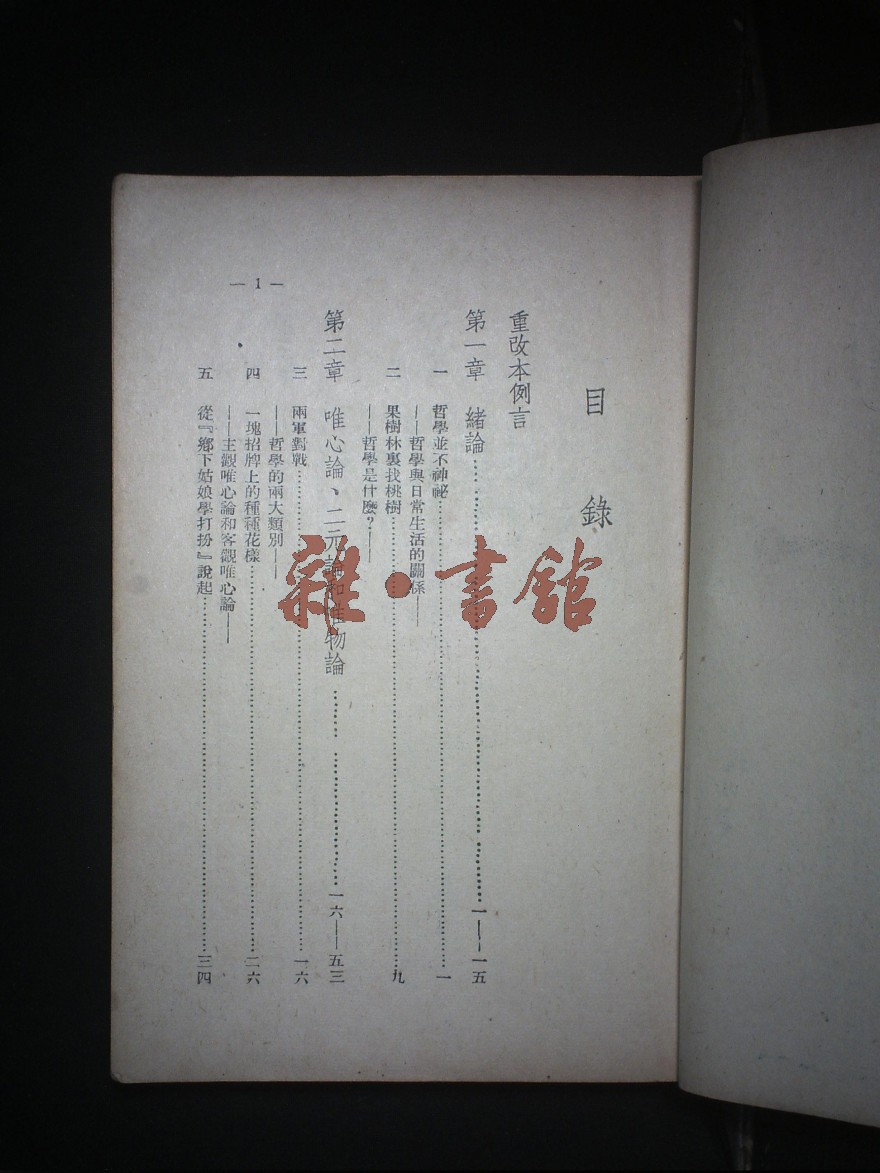 目錄
重改本例言
第一章 緒論………一——一五
一 哲學並不神祕………一
——哲學與日常生活的關係——
二 果樹林裏找桃樹………九
——哲學是什麼？——
第二章 唯心論、二元論和唯物論………一六——五三
三 兩軍對戰………一六
——哲學的兩大類別——
四 一塊招牌上的種種花樣………二六
——主觀唯心論和客觀唯心論——
五 從『鄉下姑娘學打扮』說起………三四
— 1 —
雜·書館